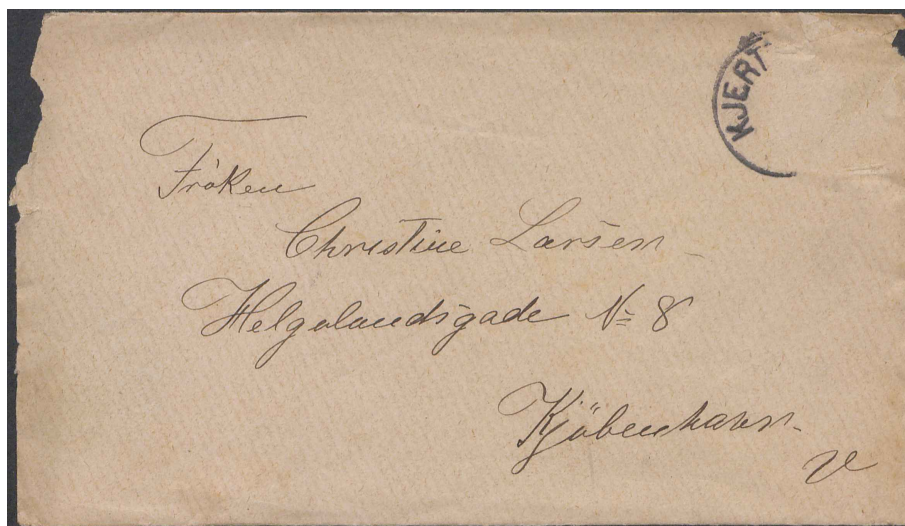 KJERT
Frøken
Christine Larsen
Helgolandsgade № 8
Kjöbenhavn
V